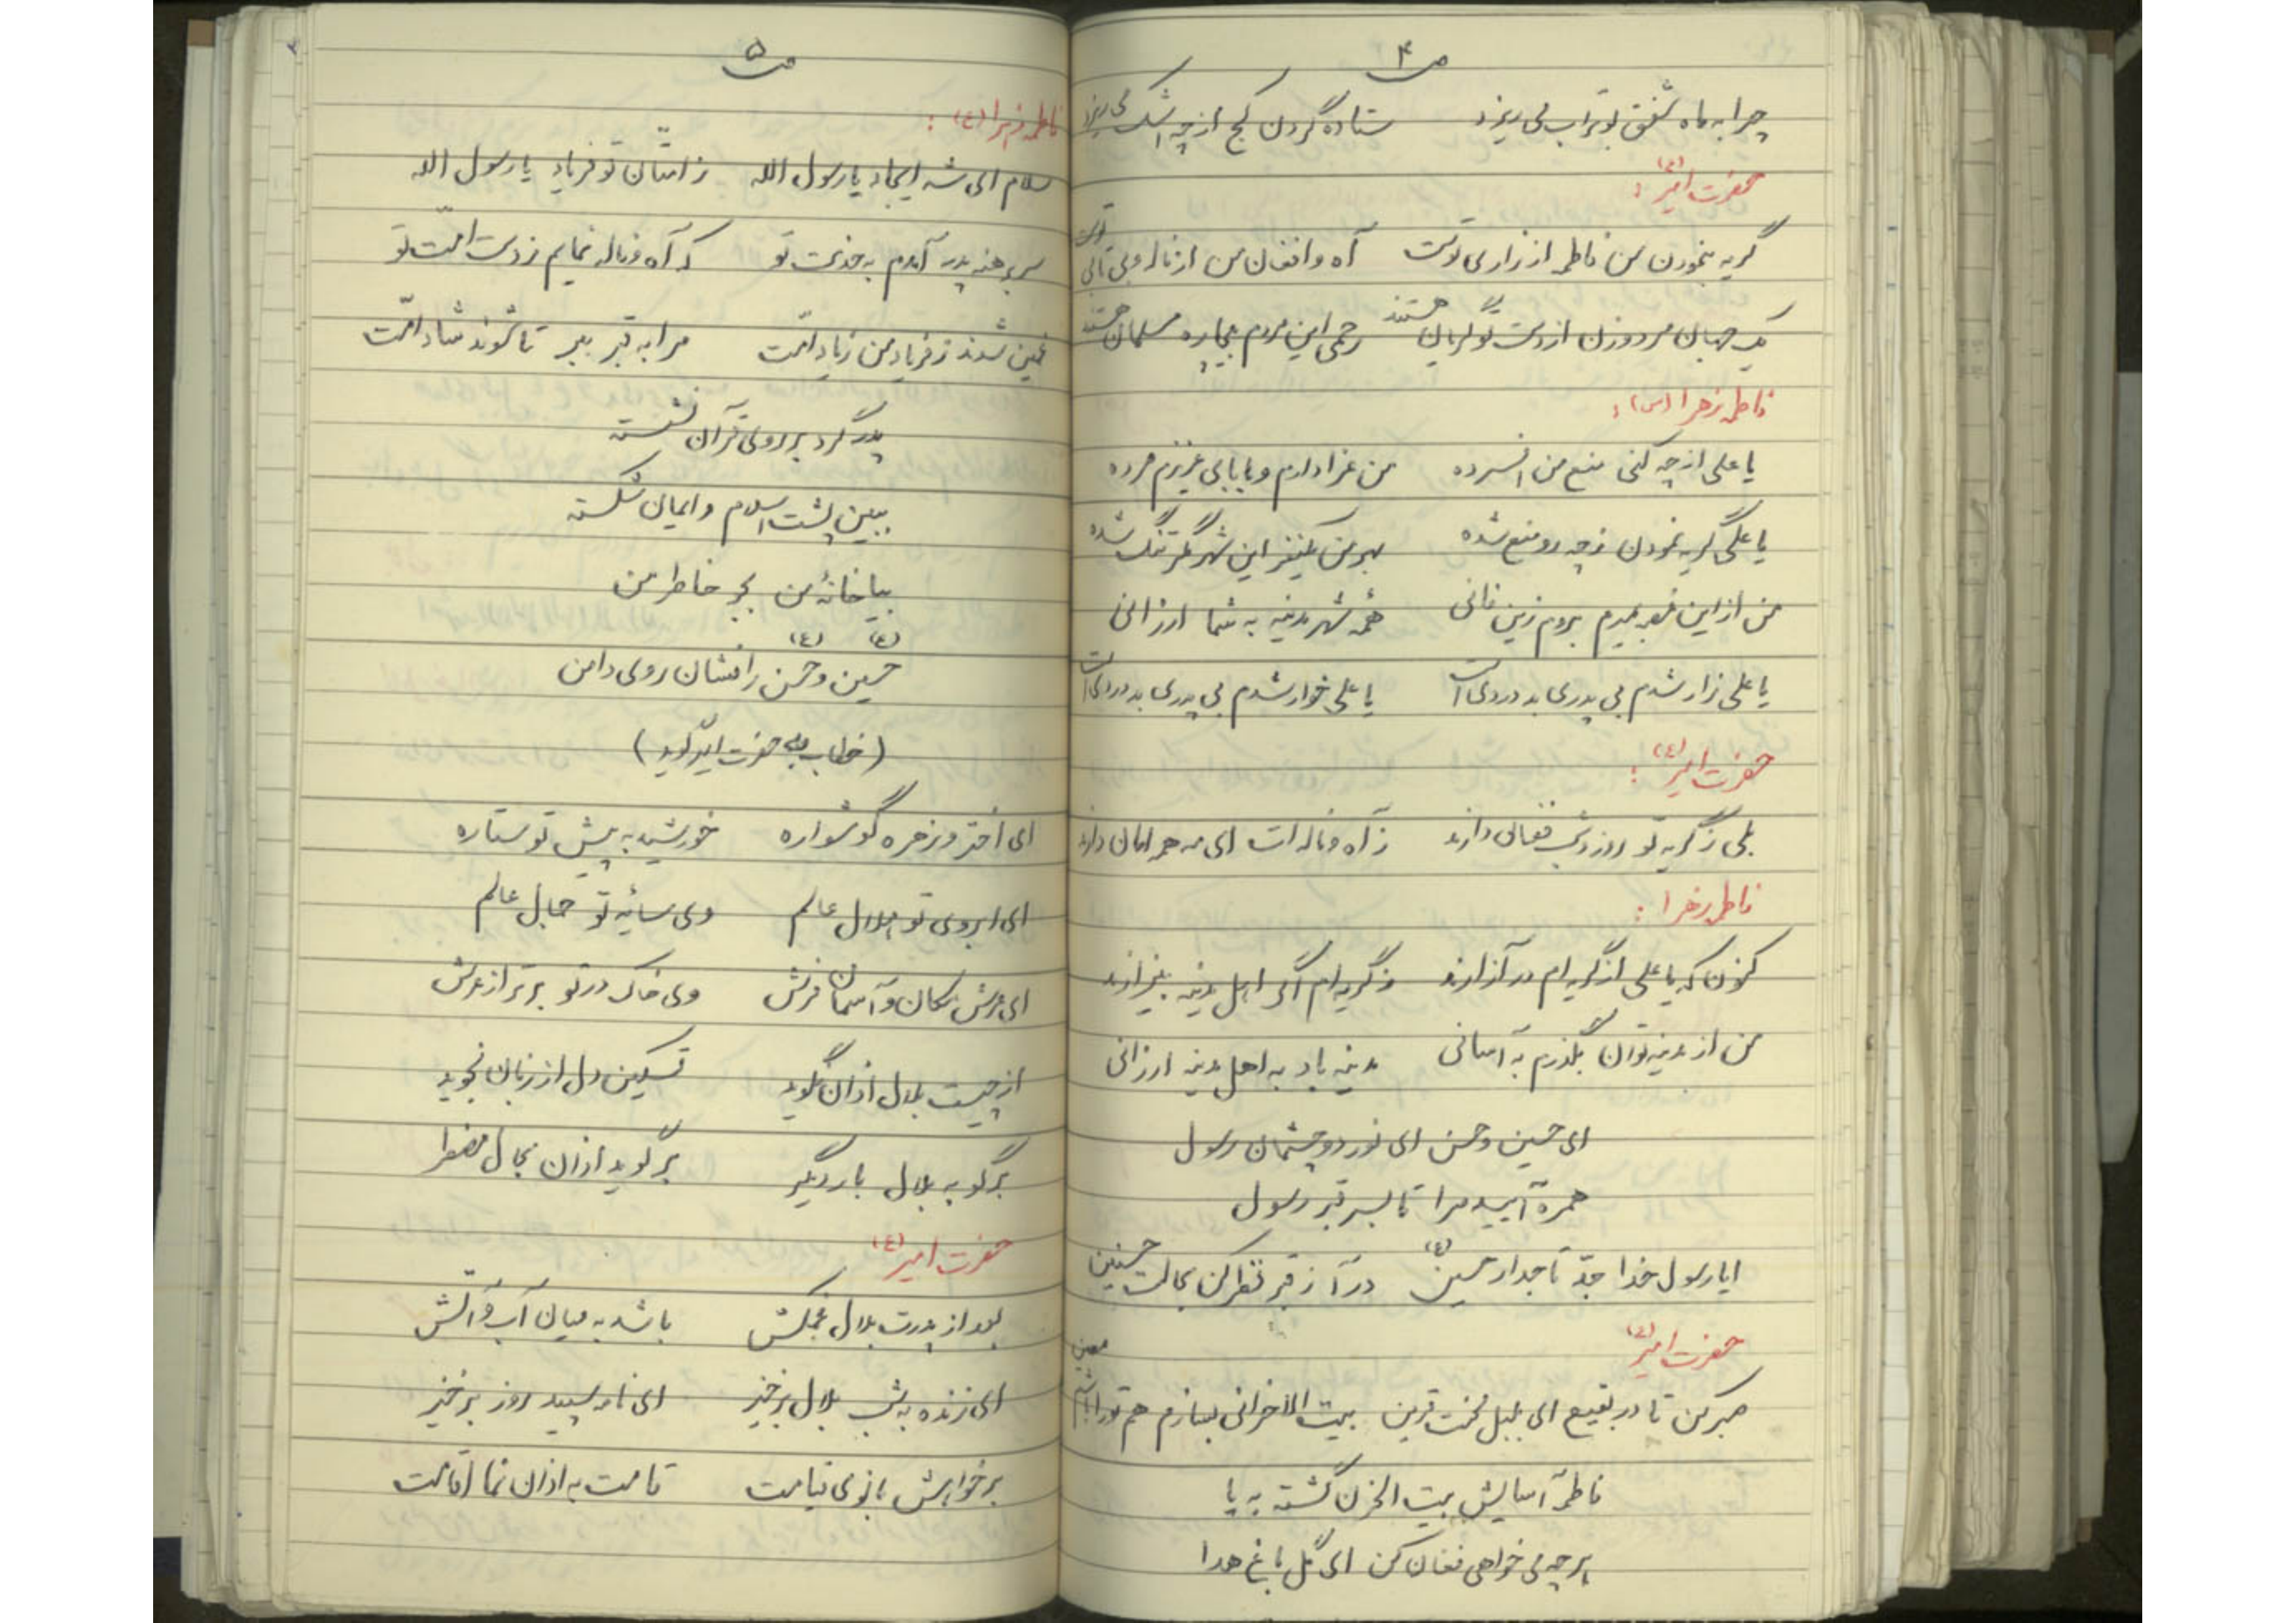 ص ۴
چرا به ماه شفق بوتراب می ریزد ستاده گردن کج از چه اشک می ریزد
حضرت امیر (ع) :
گریه بنمودن من فاطمه از زاری توست آه و افغان من از ناله و بی تابی توست
یک جهان مرد و زن از دست تو گریان هستند رحمی این مردم بیچاره مسلمان هستند
فاطمه زهرا (س) :
یا علی از چه کنی منع من افسرده من عزادارم و بابای عزیزم مرده
یا علی گریه نمودن ز چه رو منع شده بهر من یکنفر این شهر مگر تنگ شده
من از این شهر بمیرم بروم زین فانی همه شهر مدینه به شما ارزانی
یا علی زار شدم بی پدری بد دردی است یا علی خوار شدم بی پدری بد دردی است
حضرت امیر (ع) :
بلی ز گریه تو روز و شب فغان دارند ز آه و ناله ات ای مه همه امان دارند
فاطمه زهرا :
کنون که یا علی از گریه ام در آزارند ز گریه ام اگر اهل مدینه بیزارند
من از مدینه توان بگذرم به آسانی مدینه باد به اهل مدینه ارزانی
ای حسین و حسن ای نور دو چشمان رسول
همره آیید مرا تا بسر قبر رسول
ایا رسول خدا جدّ تاجدار حسین (ع) درآ ز قبر نظر کن بحالت حسنین
حضرت امیر (ع)
صبر کن تا در بقیع ای بلبل محنت قرین بیت الاحزانی بسازم هم تو را باشم معین
فاطمه آسایش بیت الحزن گشته به پا
هر چه می خواهی فغان کن ای گل باغ هدا
ص ۵
فاطمه زهرا (ع) :
سلام ای شه ایجاد یا رسول الله ز امتان تو فریاد یا رسول الله
سر برهنه پدر آمدم به خدمت تو که آه و ناله نمایم ز دست امّت تو
غمین شدند ز فریاد من زیاد امّت مرا به قبر ببر تا شوند شاد امّت
پدر گرد بر روی قرآن نشسته
ببین پشت اسلام و ایمان شکسته
بیا خانهٔ من بجو خاطر من
حسین (ع) و حسن (ع) را نشان روی دامن
(خطاب به حضرت امیر گوید)
ای اختر و زهره گوشواره خورشید به پیش تو ستاره
ای ابروی تو هلال عالم وی سایهٔ تو جمال عالم
ای عرش مکان و آسمان فرش وی خاک در تو برتر از عرش
از چیست بلال اذان نگوید تسکین دل از زبان نجوید
برگو به بلال بار دیگر برگوید اذان بحال مضطر
حضرت امیر (ع)
بعد از پدرت بلال غمکش باشد به میان آب و آتش
ای زنده به شب بلال برخیز ای نامه سپید روز برخیز
بر خواهش بانوی قیامت قامت به اذان نما اقامت